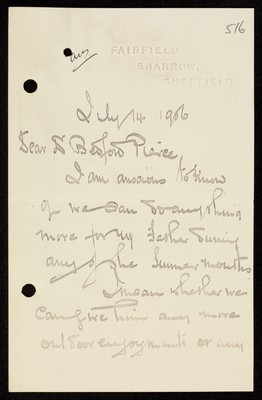 516
FAIRFIELD.
SHARROW.
SHEFFIELD.
July 14 1906
Dear Dr Bedford Pierce,
I am anxious to know
if we can do anything
more for my Father during
any of the Summer months
I mean whether we
can give him any more
out door enjoyments or any